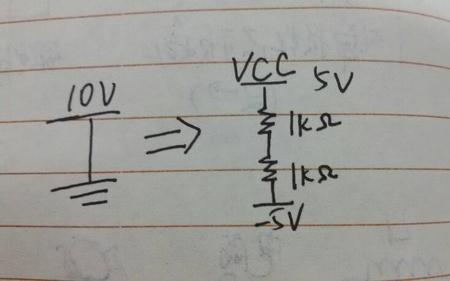 10V
VCC 5V
1kΩ
1kΩ
-5V